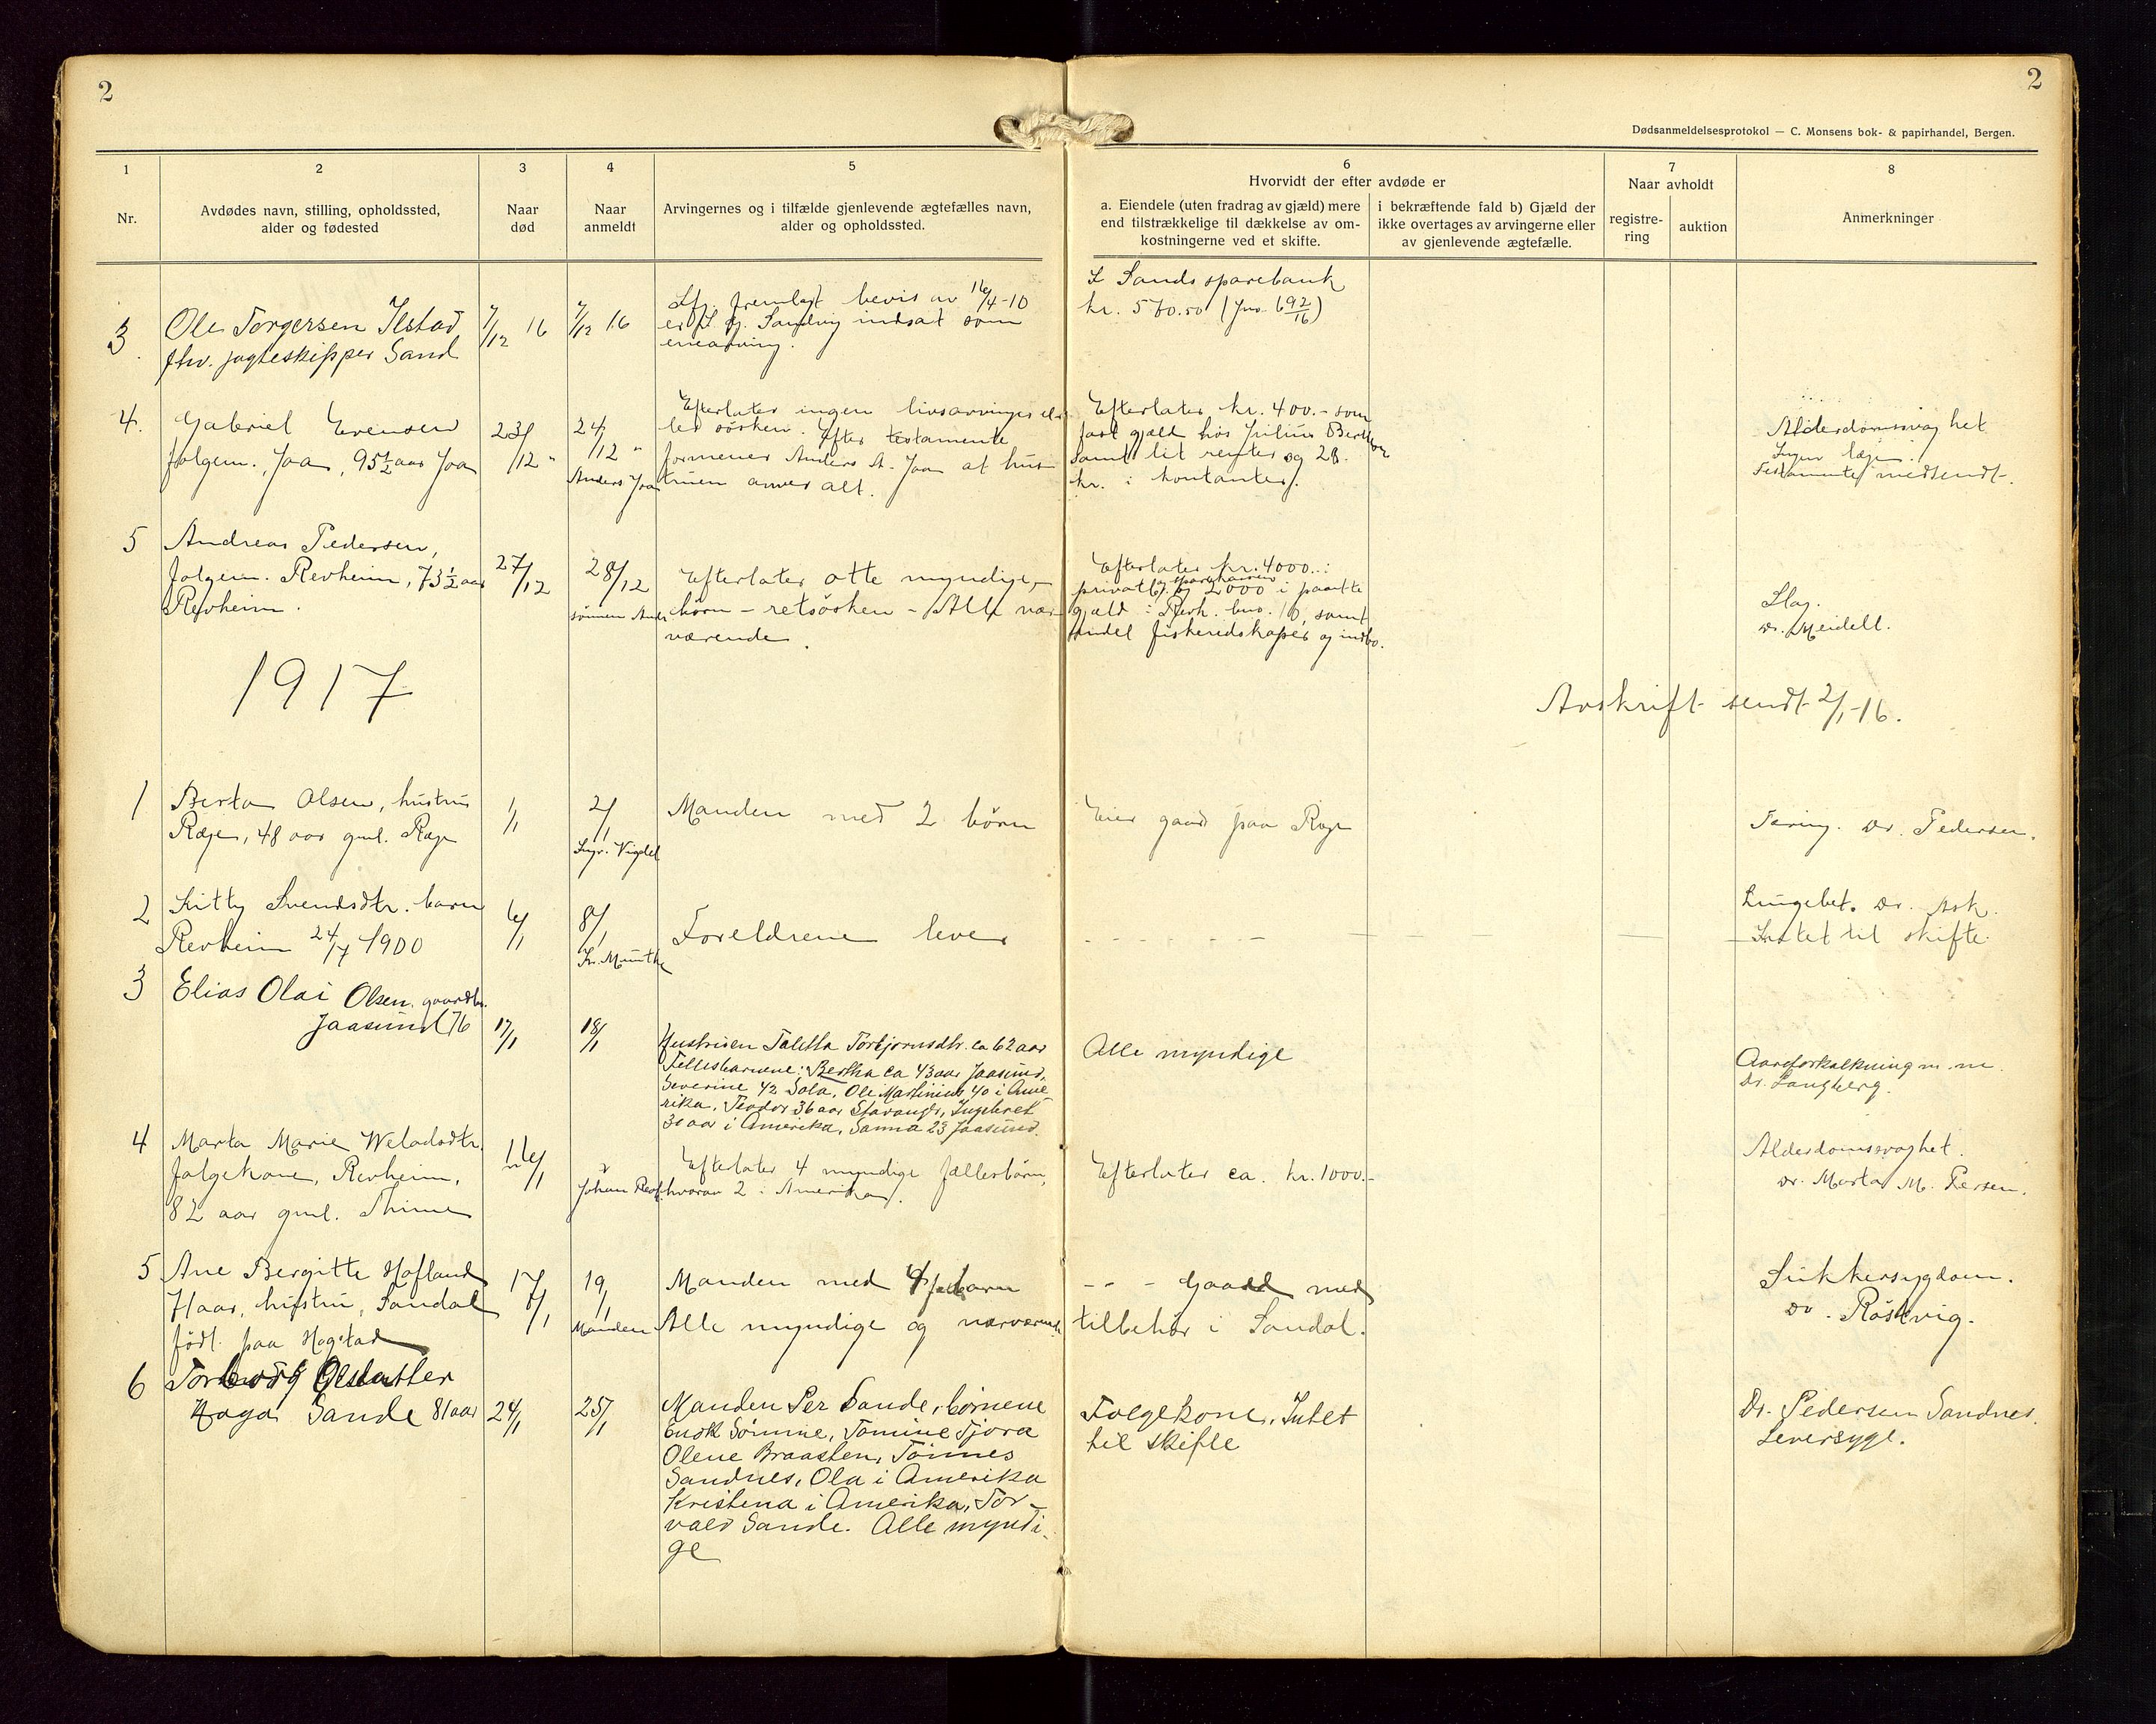 2
2
Dødsanmeldelsesprotokol — C. Monsens bok- & papirhandel, Bergen.
1
2
3
4
5
6
7
8
Nr.
Avdødes navn, stilling, opholdssted,
alder og fødested
Naar
død
Naar
anmeldt
Arvingernes og i tilfælde gjenlevende ægtefælles navn,
alder og opholdssted.
Hvorvidt der efter avdøde er
a. Eiendele (uten fradrag av gjæld) mere
end tilstrækkelige til dækkelse av om-
kostningerne ved et skifte.
i bekræftende fald b) Gjæld der
ikke overtages av arvingerne eller
av gjenlevende ægtefælle.
Naar avholdt
registre-
ring
auktion
Anmerkninger
3.
Ole Torgersen Ilstad
fhv. jagteskipper Sand
7/12 16
7/12 16
Ifg. fremlagt bevis av 16/4-10
Sandvig indsat som
enearving.
I Sands sparebank
kr. 570.50 (Jno. 692/16)
4.
Gabriel Evensen
følgem., Jaa, 95½ aar Jaa
23/12 "
24/12 "
Anders Jaa
Efterlater ingen livsarvinger el-
ler søsken. Efter testamente
formener Anders A. Jaa at hus-
truen arver alt.
Efterlater kr. 400.- som
fast gjæld hos Julius
samt lit renter og 28.
kr. i kontanter.
Alderdomssvaghet
Ingen læge.
Testamente medsendt.
5
Andreas Pedersen,
følgem. Revheim, 73½ aar
Revheim.
27/12
28/12
sønnen
Efterlater otte myndige
børn - retsøsken - Alle nær
værende.
Efterlater kr. 4000.-
privat og 2000 i pante
gjæld i Revh. bno. 10, samt
andel fiskeredskaper og indbo.
Slag.
Dr. Meidell.
1917
Avskrift sendt 2/1-16.
1
Berta Olsen, hustru
Ræge, 48 aar gml. Ræge
1/1
2/1
Ingr. Vigdel
Manden med 2 børn
Eier gaard paa Ræge
Tæring. Dr. Pedersen.
2
Kitty Svendsdtr. barn
Revheim 24/7 1900
6/1
8/1
Kr. Munthe
Foreldrene lever
Lungebet. Dr. Ask.
Intet til skifte.
3
Elias Olai Olsen. gaardbr.
Jaasund 76
17/1
18/1
Hustruen Taletta Torbjørnsdtr. ca 62 aar
Fellesbarnene: Bertha ca 43 aar Jaasund,
Severine 42 Sola, Ole Martinius 40 i Ame
rika, Teodor 36 aar Stavanger, Ingebret
30 aar i Amerika, Sanna 23 Jaasund.
Alle myndige
Aareforkalkning m. m.
Dr. Langberg.
4
Marta Marie Weladsdtr.
følgekone, Revheim,
82 aar gml. Thime
16/1
Johan
Efterlater 4 myndige fællesbørn,
hvorav 2 i Amerika.
Efterlater ca. kr. 1000.-
Alderdomssvaghet.
Dr. Marta M. Persen.
5
Ane Bergitte Hofland
Haar, hustru, Sandal
født paa Hogstad
17/1
19/1
Manden
Manden med 4
Alle myndige og nærværende
- - - Gaard med
tilbehør i Sandal.
Sukkersygdom.
Dr. Røstvig.
6
Torborg Olsdatter
Haga Sande 81 aar
24/1
25/1
Manden Per Sande, børnene
Enok Sømme, Tomine Tjora
Olene Braasten, Tønnes
Sandnes, Ola i Amerika
Kristena i Amerika, Tor-
vald Sande. Alle myndi-
ge
Følgekone. Intet
til skifte
Dr. Pedersen Sandnes.
Leversyge.